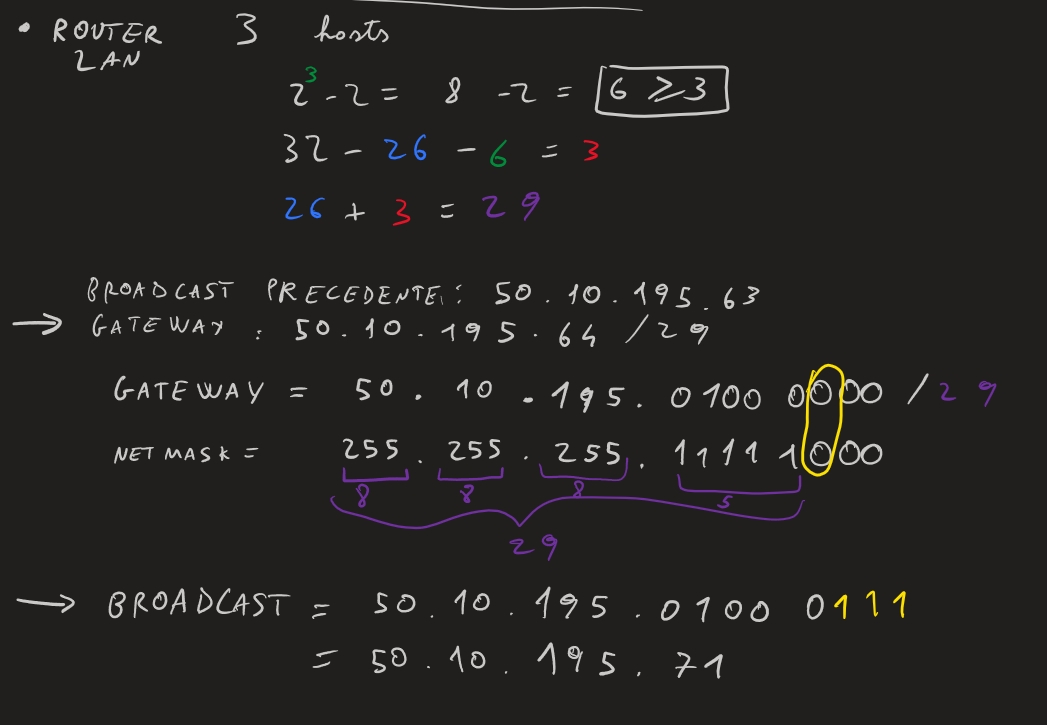 • ROUTER 3 hosts
LAN
2³ - 2 = 8 - 2 = 6 ⩾ 3
32 - 26 - 6 = 3
26 + 3 = 29
BROADCAST PRECEDENTE: 50.10.195.63
→ GATEWAY: 50.10.195.64 /29
GATEWAY = 50.10.195.0100 0000 /29
NETMASK = 255.255.255.11111000
8 8 8 5
29
→ BROADCAST = 50.10.195.0100 0111
= 50.10.195.71